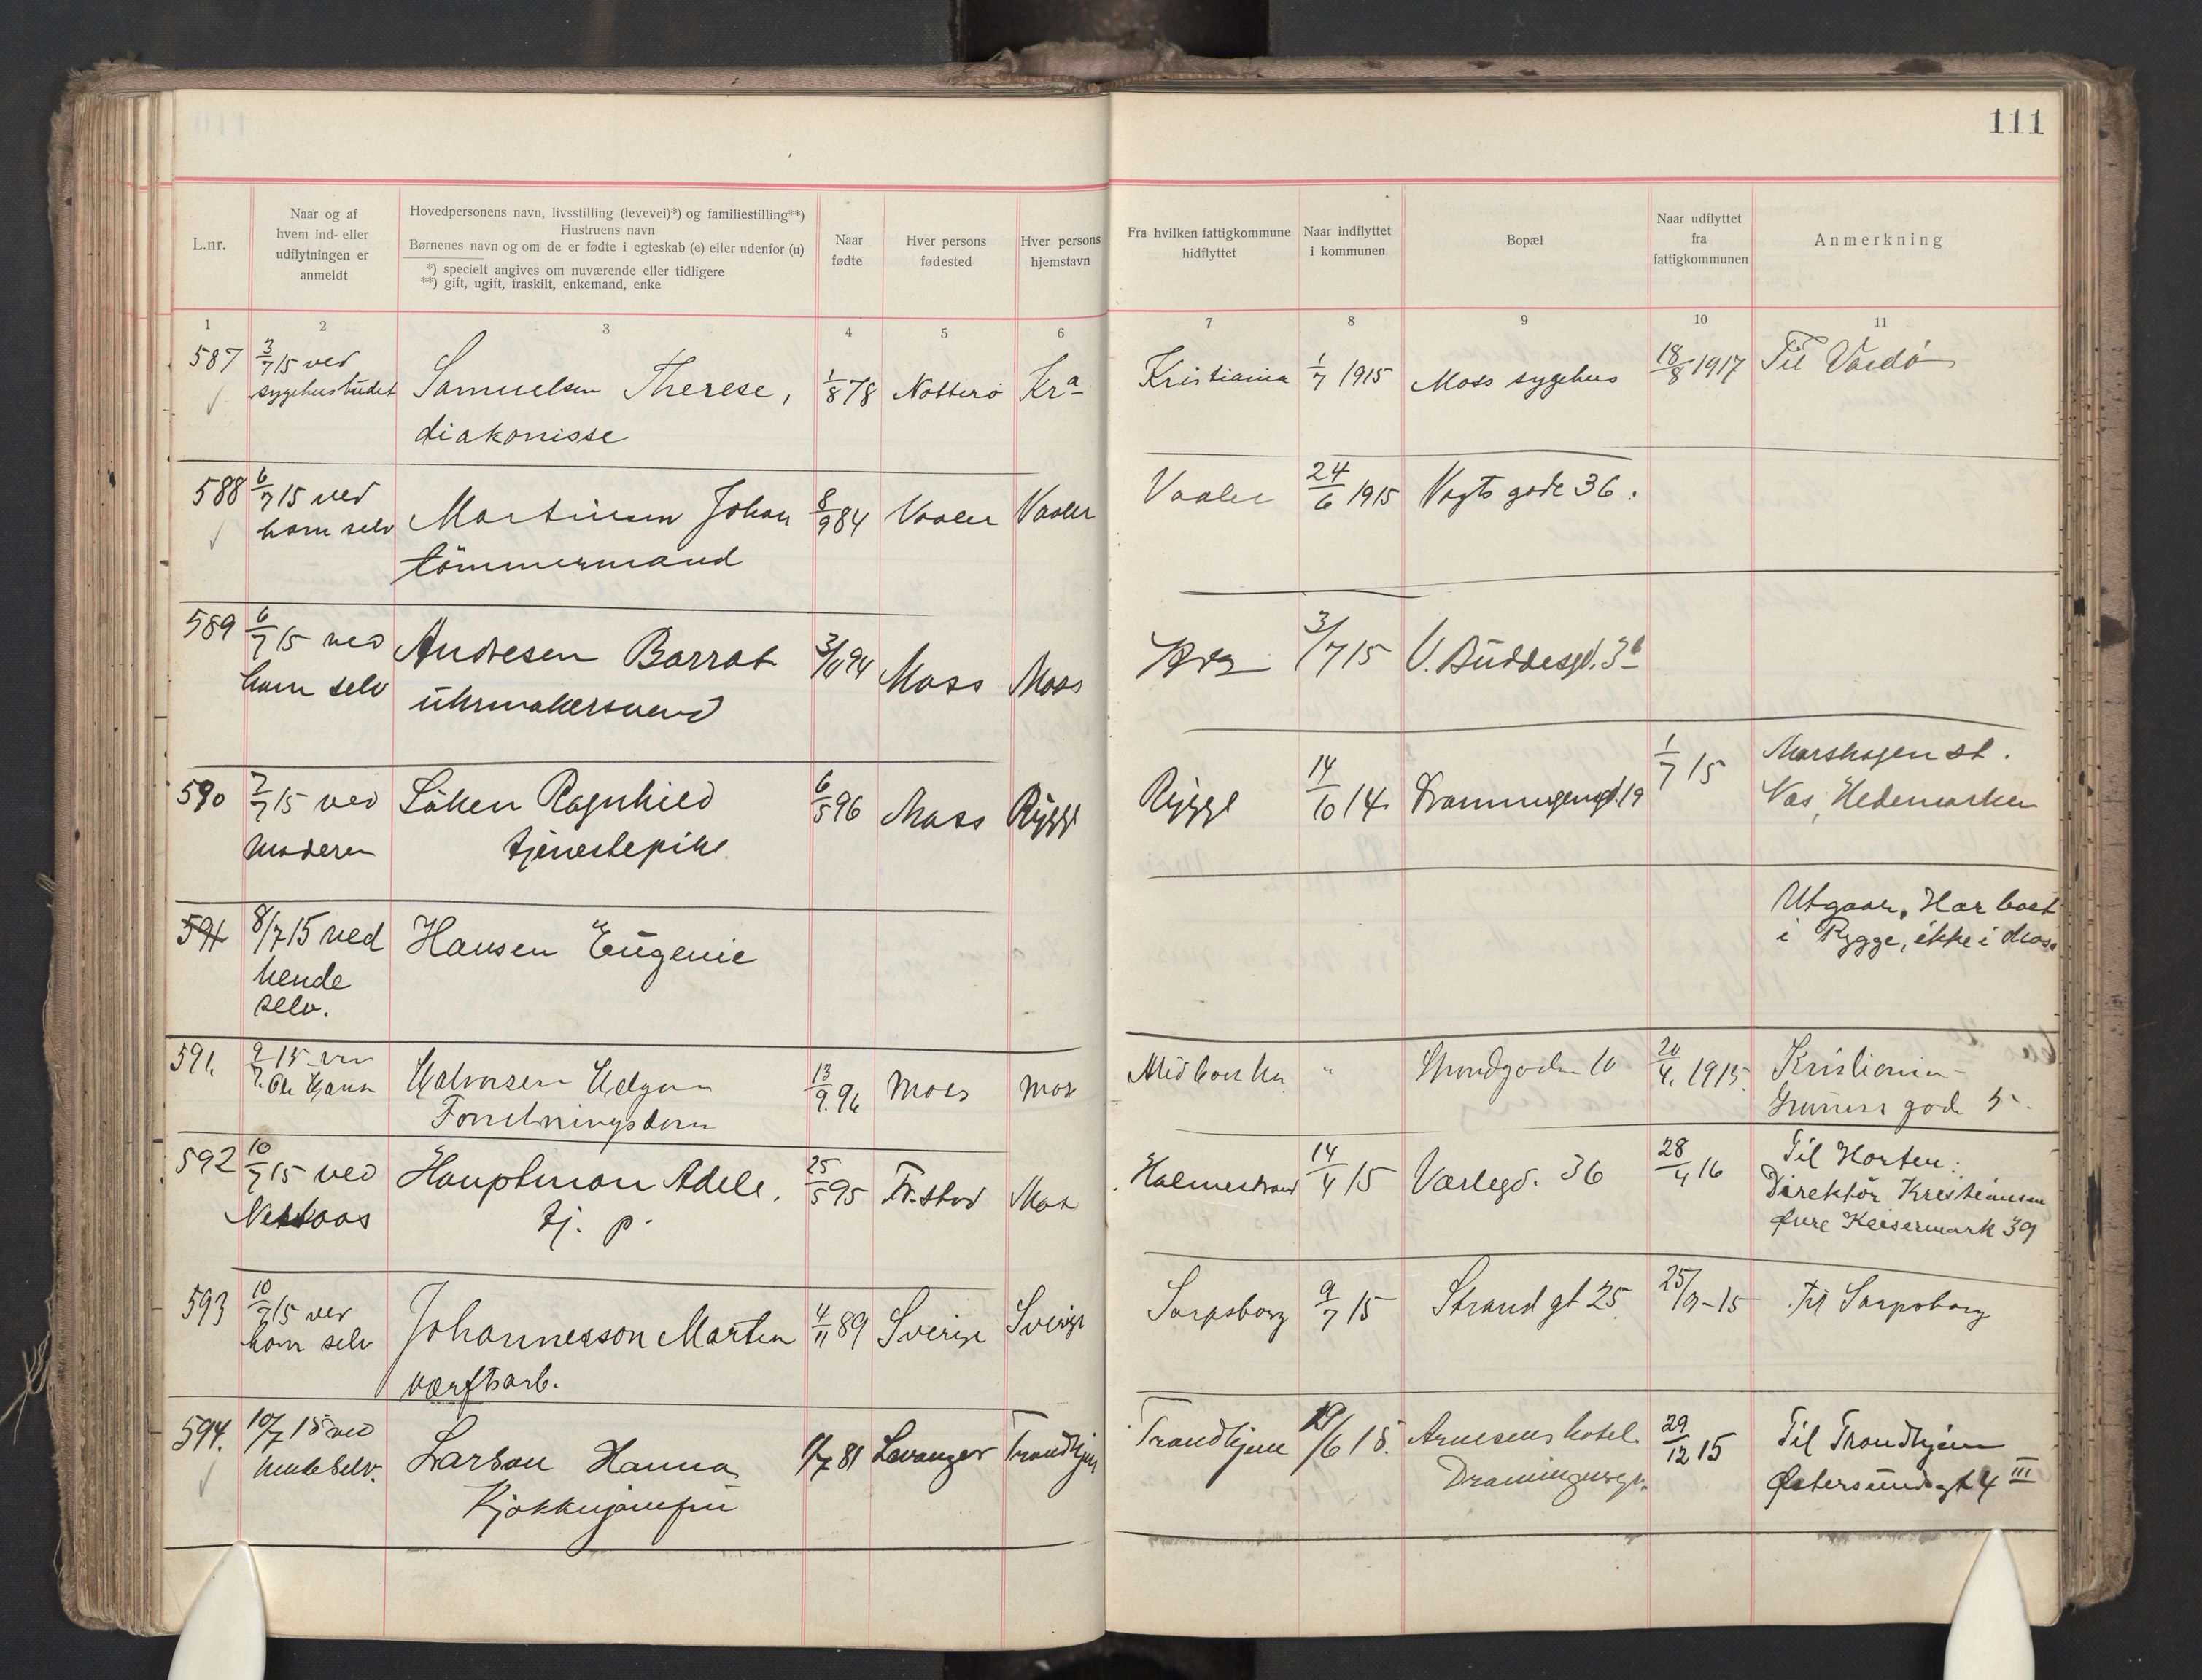 111
L.nr.
Naar og af
hvem ind- eller
udflytningen er
anmeldt
Hovedpersonens navn, livsstilling (levevei)*) og familiestilling**)
Hustruens navn
Børnenes navn og om de er fødte i egteskab (e) eller udenfor (u)
*) specielt angives om nuværende eller tidligere
**) gift, ugift, fraskilt, enkemand, enke
Naar
fødte
Hver persons
fødested
Hver persons
hjemstavn
Fra hvilken fattigkommune
hidflyttet
Naar indflyttet
i kommunen
Bopæl
Naar udflyttet
fra
fattigkommunen
Anmerkning
1 2 3 4 5 6 7 8 9 10 11
587 3/7 15 ved
sygehusbudet
Samuelsen Therese,
diakonisse
1/8 78 Nøtterö Kra
Kristiania 1/7 1915 Moss sygehus 18/8 1917 Til Vardö
588 6/7 15 ved
ham selv
Martinsen Johan
tömmermand
8/9 84 Vaaler Vaaler
Vaaler 24/6 1915 Vogts gade 36.
589 6/7 15 ved
ham selv
Andresen Barrat
uhrmakersvend
94 Moss Moss
Kra 3/7 15 V. Buddesgd. 3b
590 7/7 15 ved
moderen
Löken Ragnhild
tjenestepike
6/5 96 Moss Rygge
Rygge 14/10 14 Dronningensgd. 19 1/7 15
st.
Nes, Hedemarken
591 8/7 15 ved
hende
selv.
Hansen Eugenie
Utgaar. Har boet
i Rygge, ikke i Moss
591. 9/7 15
Halvorsen Helga
Forretningsdam
13/9 96 Moss Moss
" 10 20/4 1915. Kristiania
5.
592 10/7 15 ved
Hauptman Adele.
tj. p.
25/5 95 Fr.stad Moss
Holmestrand 14/4 15 Varlegd. 36 28/4 16
Til Horten:
Direktör Kristiansen
Øvre Keisermark 39
593 10/7 15 ved
ham selv
Johannesson Martin
værftsarb.
4/11 89 Sverige Sverige
Sarpsborg 9/7 15 Strand gt 25. 25/9-15 Til Sarpsborg
594. 10/7 15 ved
hende selv.
Larsen Hanna
Kjøkkenjomfru
81 Levanger Trondhjem
Trondhjem 29/6 15. Arnesens hotel.
Dronningensgt.
29/12 15
Til Trondhjem
Østersundsgt 4 III